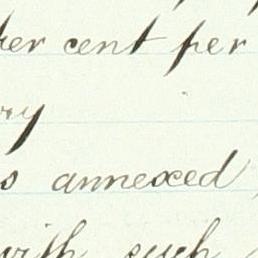 per cent per
ry
s annexed,
with such